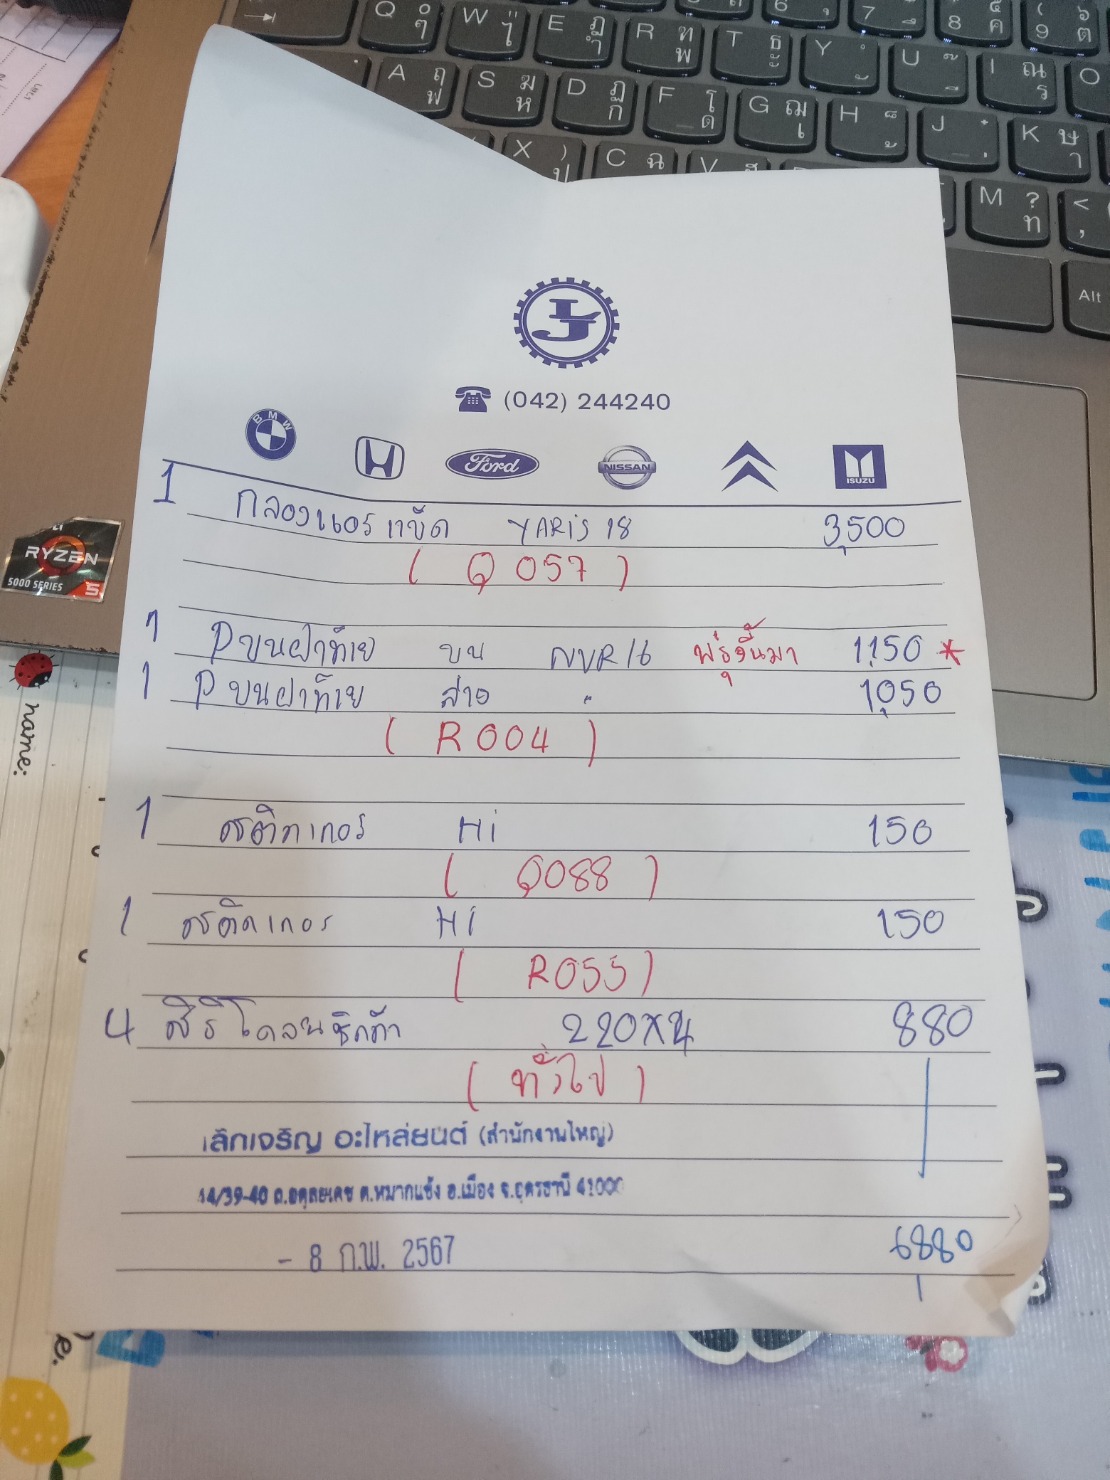 Q W E R T Y U
7 8 9
A S D F G H J K
X C V M
Alt
LJ
(042) 244240
BMW H Ford NISSAN ISUZU
1 กล่องแอร์ แข็ด YARIS 18 3,500
( Q 057 )
1 P ขนฝาท้าย บน NVR 16 1,150 *
1 P ขนฝาท้าย ล่าง " 1,050
( R 004 )
1 สติกเกอร์ Hi 150
( Q088 )
1 สติกเกอร์ Hi 150
( R055 )
4 220x4 880
( ทั่วไป )
เล็กเจริญ อะไหล่ยนต์ (สำนักงานใหญ่)
44/39-40 ถ.อดุลยเดช ต.หมากแข้ง อ.เมือง จ.อุดรธานี 41000
- 8 ก.พ. 2567
6880
RYZEN
5000 SERIES 5
name: